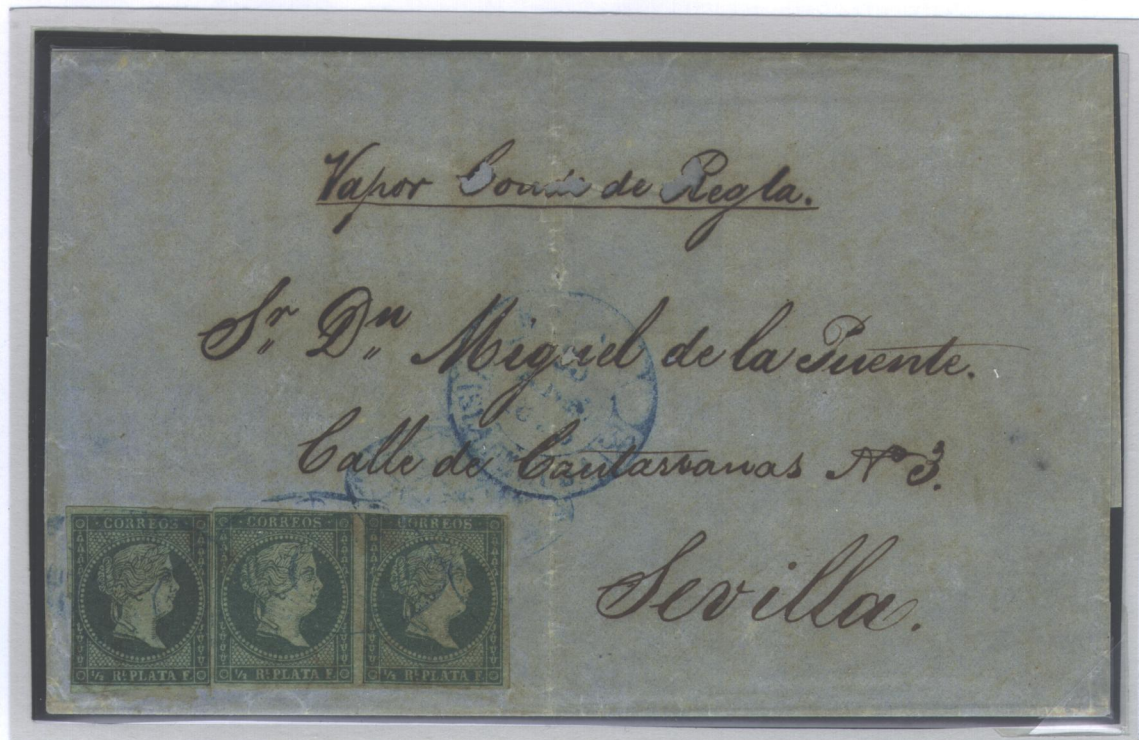 Vapor Conde de Regla.
Sr. Dn. Miguel de la Puente.
Calle de Cantarranas No 3.
Sevilla.
CORREOS CORREOS CORREOS
Rl. PLATA F. Rl. PLATA F. Rl. PLATA F.